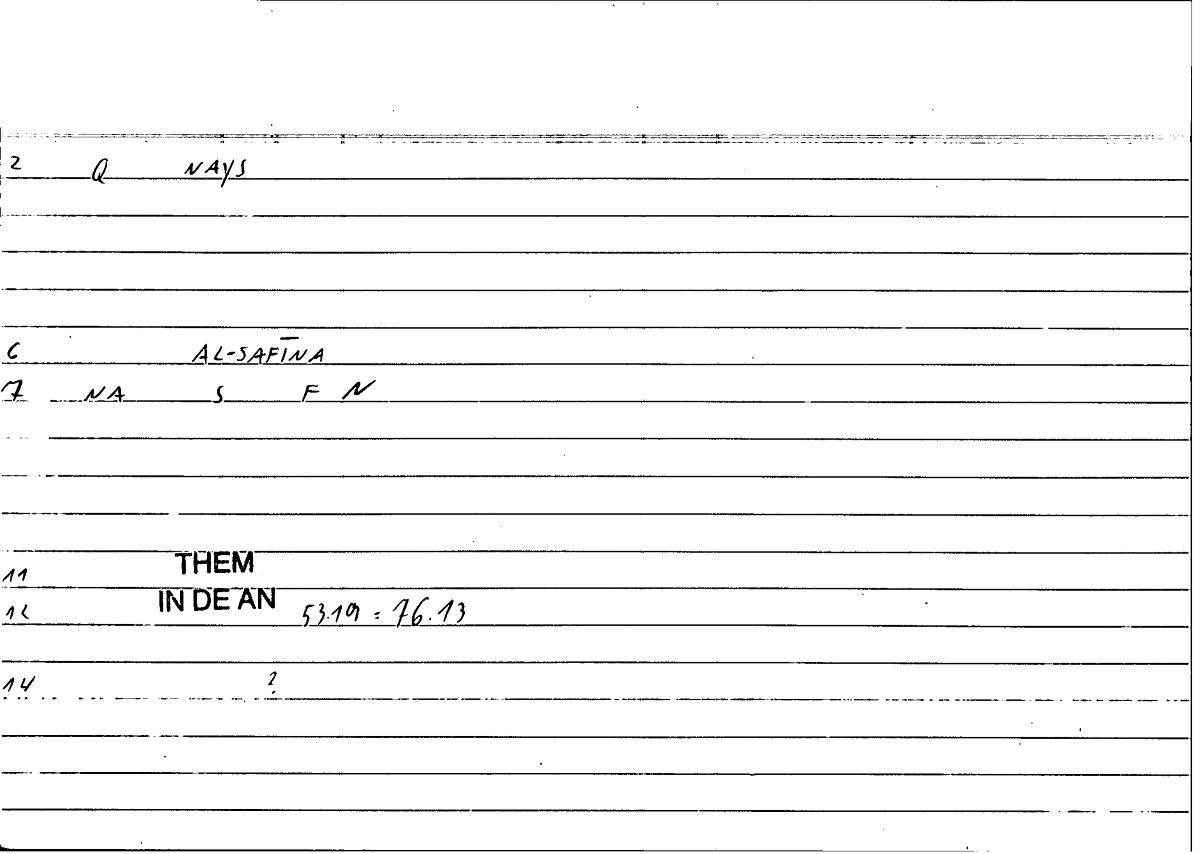 2 Q NAYS
6 AL-SAFĪNA
7 NA S F N
11 THEM
12 IN DE AN 53.19 = 76.13
14 ?